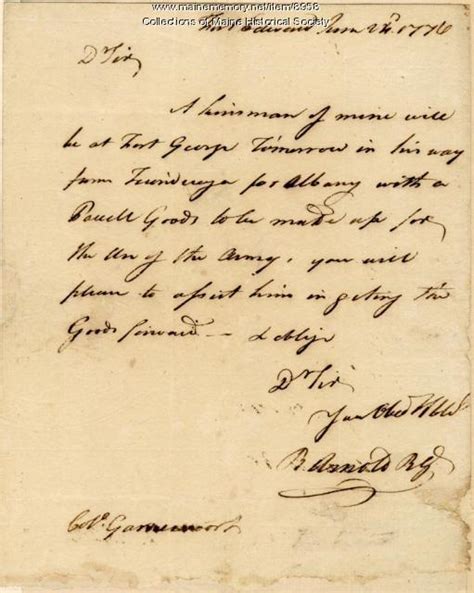 www.mainememory.net/item/8958
Collections of Maine Historical Society
Fort Edward June 24. 1776
Dr Sir
A kinsman of mine will
be at Fort George Tomorrow in his way
from Ticonderoga for Albany with a
Parcell Goods to be made up for
the Use of the Army, you will
please to assist him in geting the
Goods forward — & oblige
Dr Sir
Your Obed Hble
B Arnold BG
Colo. Gansevoort